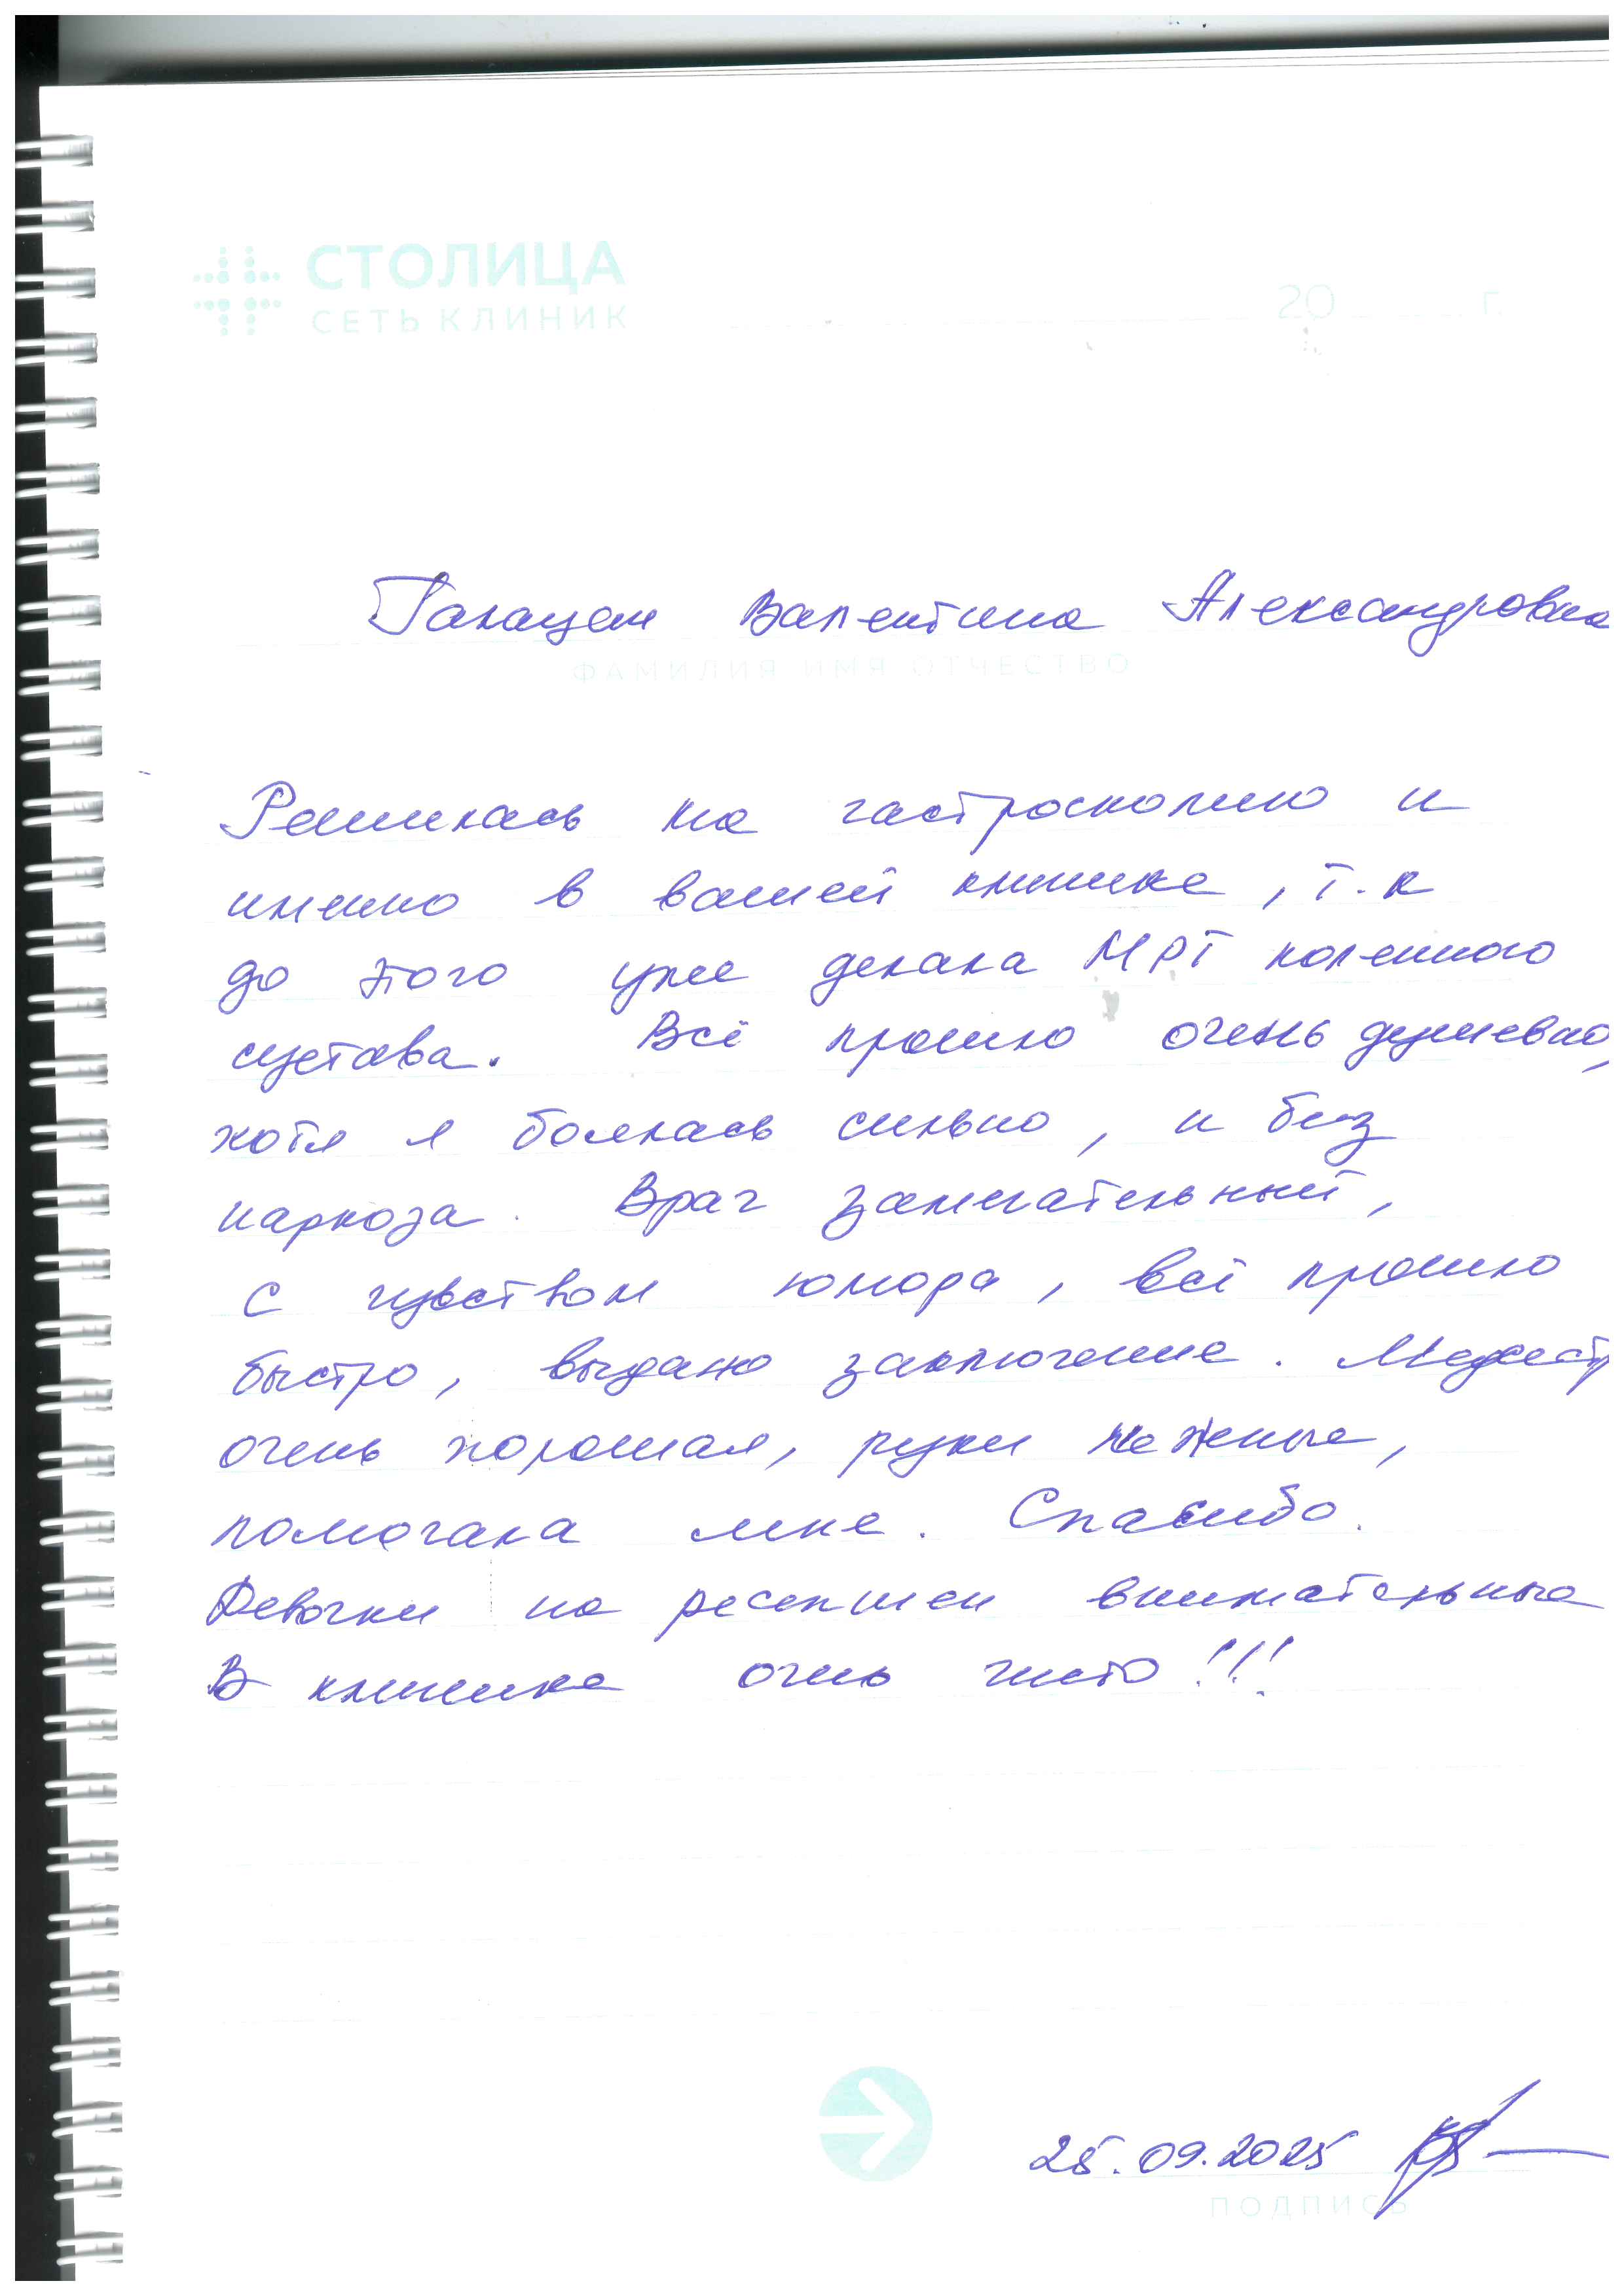 СТОЛИЦА
СЕТЬ КЛИНИК
20 г.
Валентина Александровна
ФАМИЛИЯ ИМЯ ОТЧЕСТВО
Решилась на гастроскопию и
именно в вашей клинике, т.к
до этого уже делала МРТ коленного
сустава. Всё прошло очень душевно,
хотя я боялась сильно, и без
наркоза. Врач замечательный,
с чувством юмора, всё прошло
быстро, выдано заключение. Медсестр
очень хорошая, руки нежные,
помогала мне. Спасибо.
Девочки на ресепшен внимательные
В клинике очень чисто!!!
25.09.2025
ПОДПИСЬ